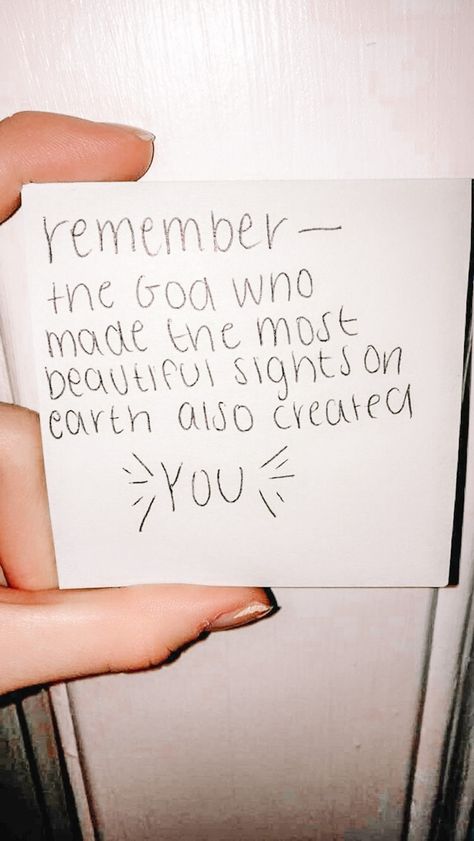 remember —
the God who
made the most
beautiful sights on
earth also created
YOU